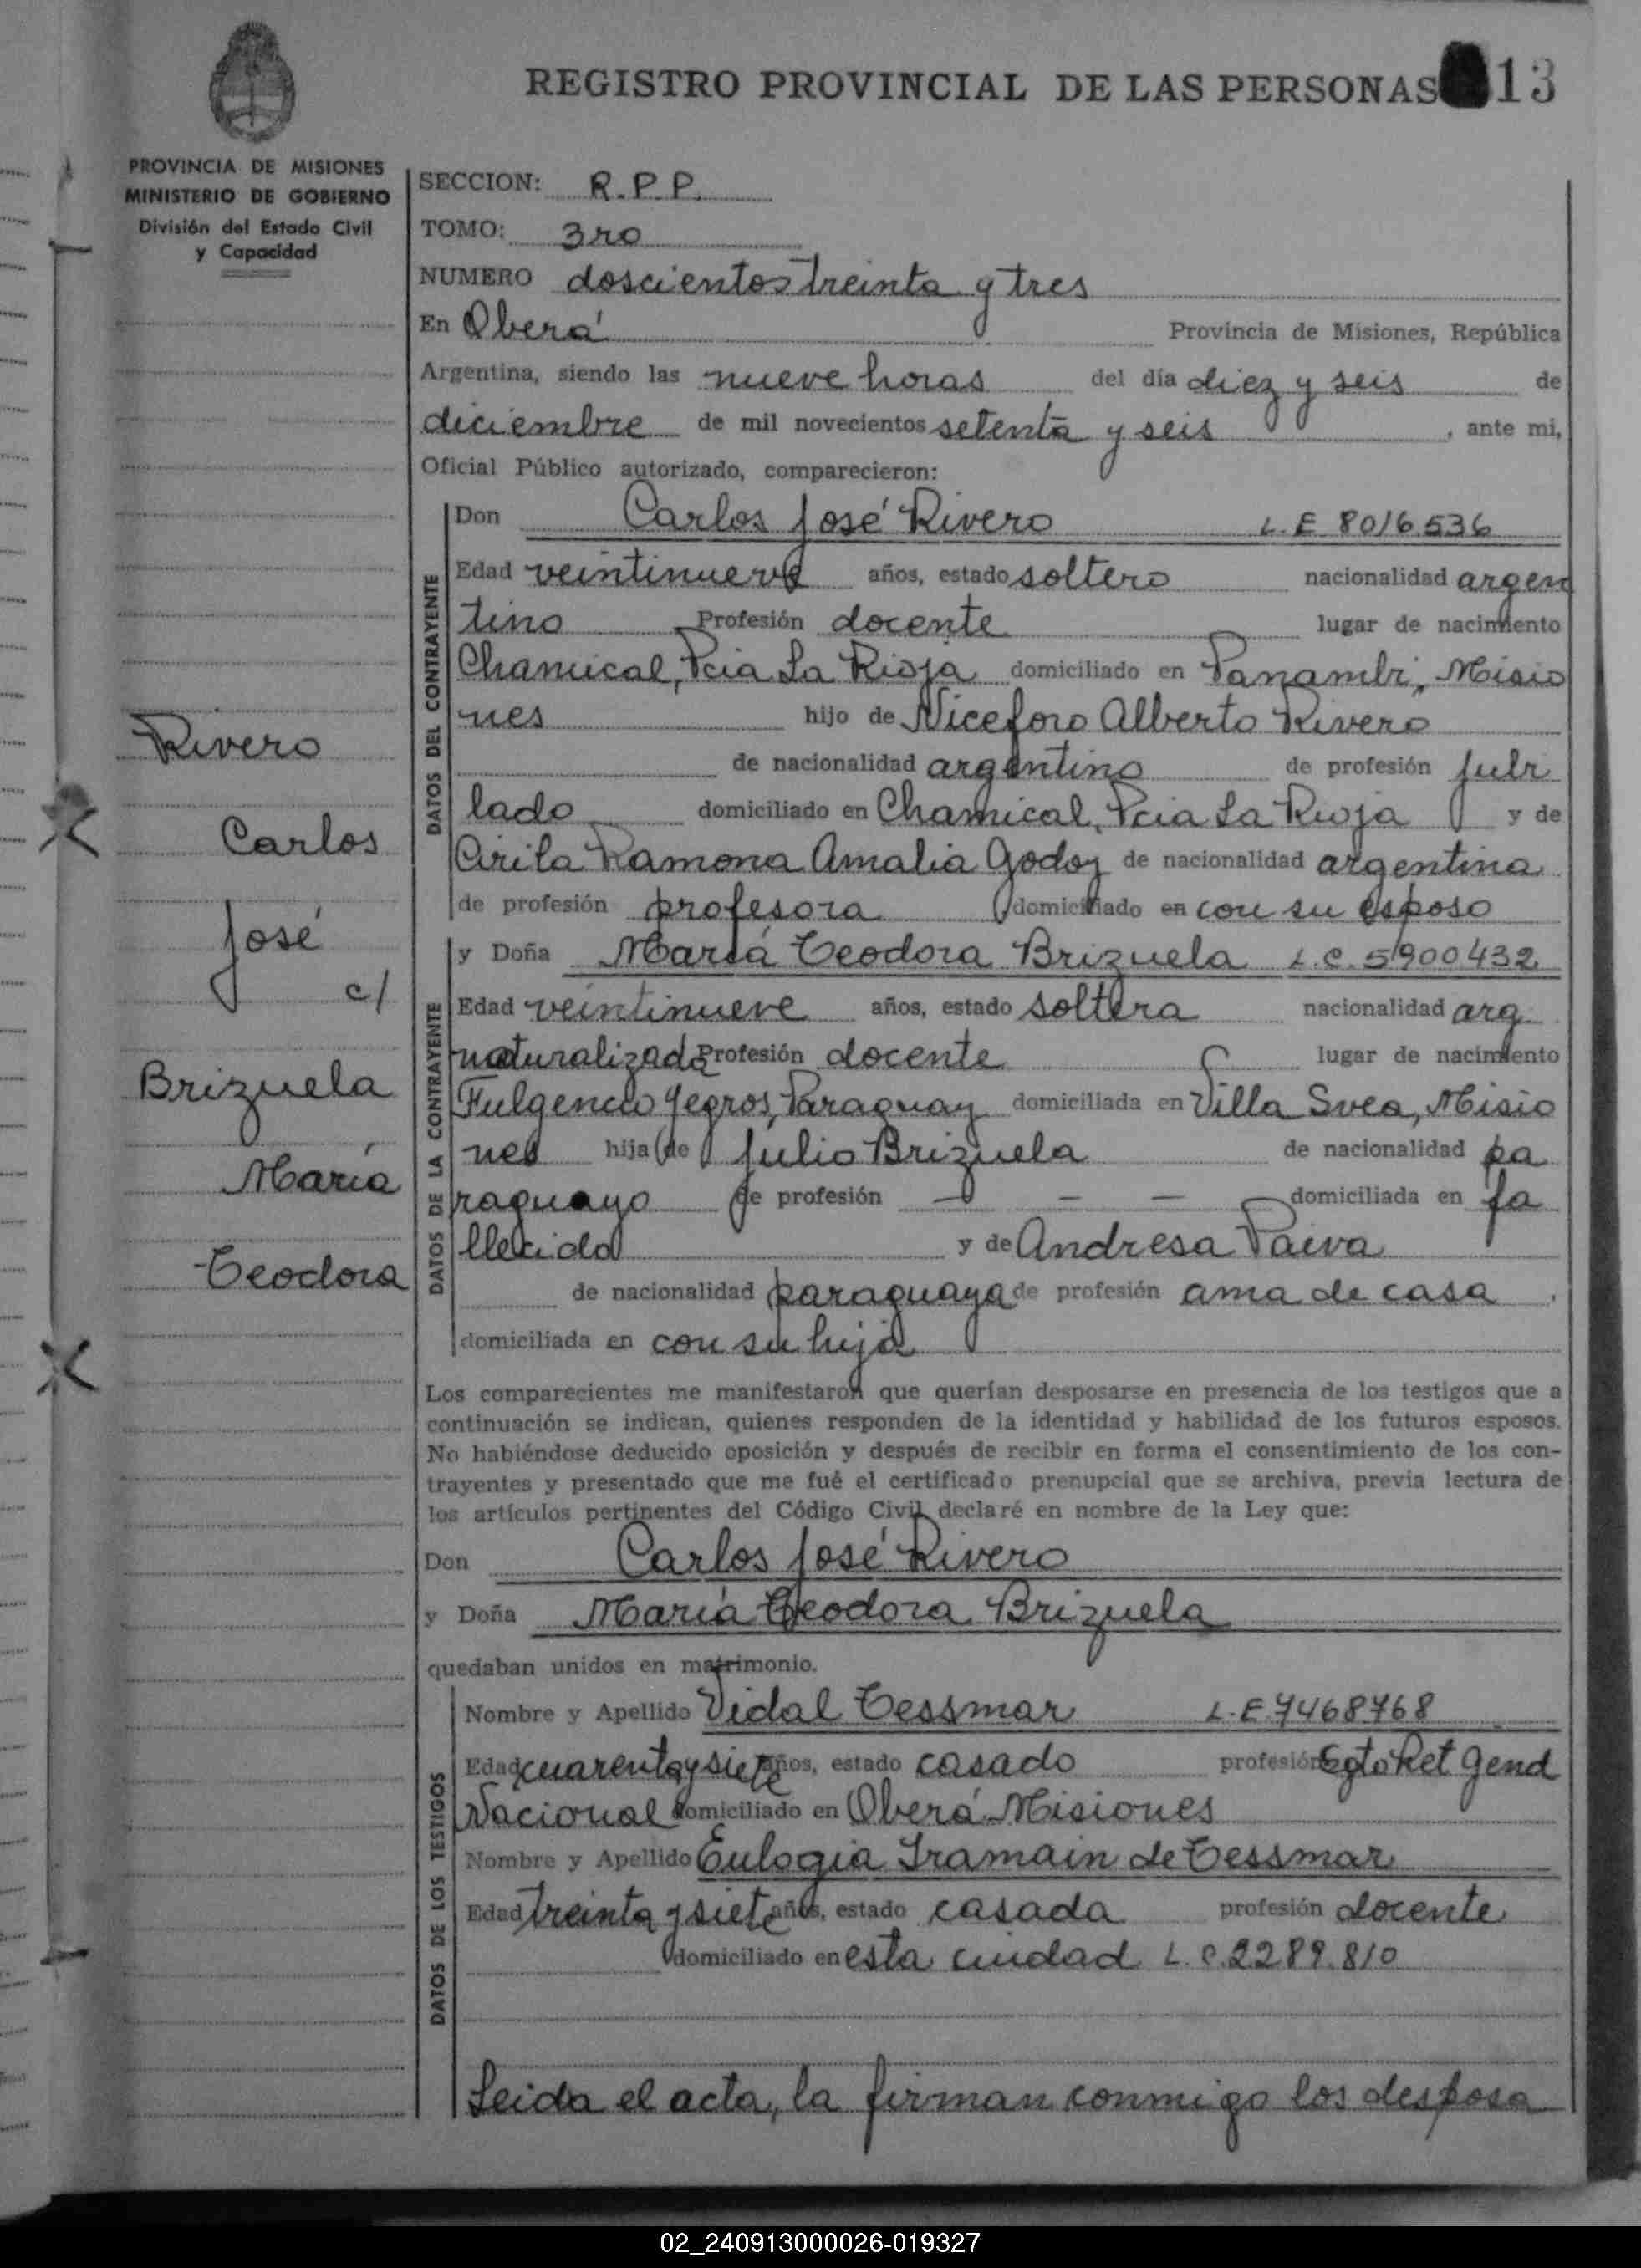 REGISTRO PROVINCIAL DE LAS PERSONAS 13
PROVINCIA DE MISIONES
MINISTERIO DE GOBIERNO
División del Estado Civil
y Capacidad
SECCION: R.P.P.
TOMO: 3ro
NUMERO doscientos treinta y tres
En Oberá Provincia de Misiones, República
Argentina, siendo las nueve horas del día diez y seis de
diciembre de mil novecientos setenta y seis, ante mi,
Oficial Público autorizado, comparecieron:
DATOS DEL CONTRAYENTE
Don Carlos José Rivero L.E 8016.536
Edad veintinueve años, estado soltero nacionalidad argen
tino Profesión docente lugar de nacimiento
Chamical, Pcia La Rioja domiciliado en Panambi, Misio
nes hijo de Niceforo Alberto Rivero
de nacionalidad argentino de profesión jubi
lado domiciliado en Chamical, Pcia La Rioja y de
Cirila Ramona Amalia Godoy de nacionalidad argentina
de profesión profesora domiciliado en con su esposo
Rivero
Carlos
José
c/
Brizuela
María
Teodora
DATOS DE LA CONTRAYENTE
y Doña María Teodora Brizuela L.C. 5900432
Edad veintinueve años, estado soltera nacionalidad arg.
naturalizada Profesión docente lugar de nacimiento
Fulgencio Yegros, Paraguay domiciliada en Villa Svea, Misio
nes hija de Julio Brizuela de nacionalidad pa
raguayo de profesión — — — domiciliada en fa
llecido y de Andresa Paiva
de nacionalidad paraguaya de profesión ama de casa
domiciliada en con su hija
Los comparecientes me manifestaron que querían desposarse en presencia de los testigos que a
continuación se indican, quienes responden de la identidad y habilidad de los futuros esposos.
No habiéndose deducido oposición y después de recibir en forma el consentimiento de los con-
trayentes y presentado que me fué el certificado prenupcial que se archiva, previa lectura de
los artículos pertinentes del Código Civil declaré en nombre de la Ley que:
Don Carlos José Rivero
y Doña María Teodora Brizuela
quedaban unidos en matrimonio.
DATOS DE LOS TESTIGOS
Nombre y Apellido Vidal Tessmar L.E.7468768
Edad cuarenta y siete años, estado casado profesión Sgto Ret Gend
Nacional domiciliado en Oberá Misiones
Nombre y Apellido Eulogia Iramain de Tessmar
Edad treinta y siete años, estado casada profesión docente
domiciliado en esta ciudad L.C.2289.810
Leida el acta, la firman conmigo los desposa
02_240913000026-019327